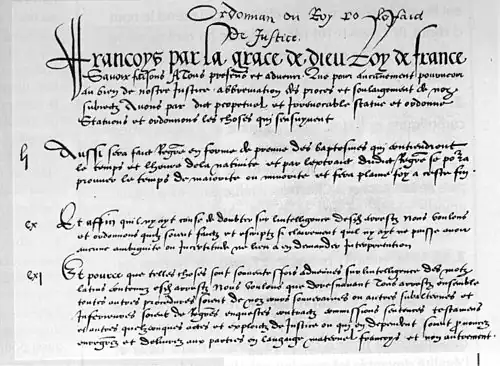 Ordonnan du Roy
de Justice
Francoys par la grace de dieu Roy de france
Savoir faisons a Tous presens et advenir Que pour aucunement pourveoir
au bien de nostre Justice abbreviation des proces et soulagement de noz
subiectz Avons par edict perpetuel et irrevocable statue et ordonne
Statuons et ordonnons les choses qui sensuyvent
Aussi sera faict Regre en forme de preuve des baptesmes qui contiendront
le temps et lheure de la nativite et par lextraict dudict Regre se po ra
prouver le temps de maiorite ou minorite et fera plaine foy a ceste fin
cx Et affin quil ny ayt cause de doubter sur lintelligence desd arrestz Nous voulons
et ordonnons quilz soient faictz et escriptz si clairement quil ny ayt ne puisse avoir
aucune ambiguite ou incertitude ne lieu a en demander Interpretation
cxi Et pource que telles choses sont souvent advenues sur lintelligence des motz
latins contenuz esd arrestz Nous voulons que doresnavant Tous arrestz ensemble
toutes autres procedures soient de noz cours souveraines ou autres subalternes et
inferieures soient de Regres enquestes contractz commissions sentences testamens
et autres quelzconques actes et exploictz de Justice ou qui en dependent soient prononcez
enregrez et delivrez aux parties en langaige maternel francoys et non autrement